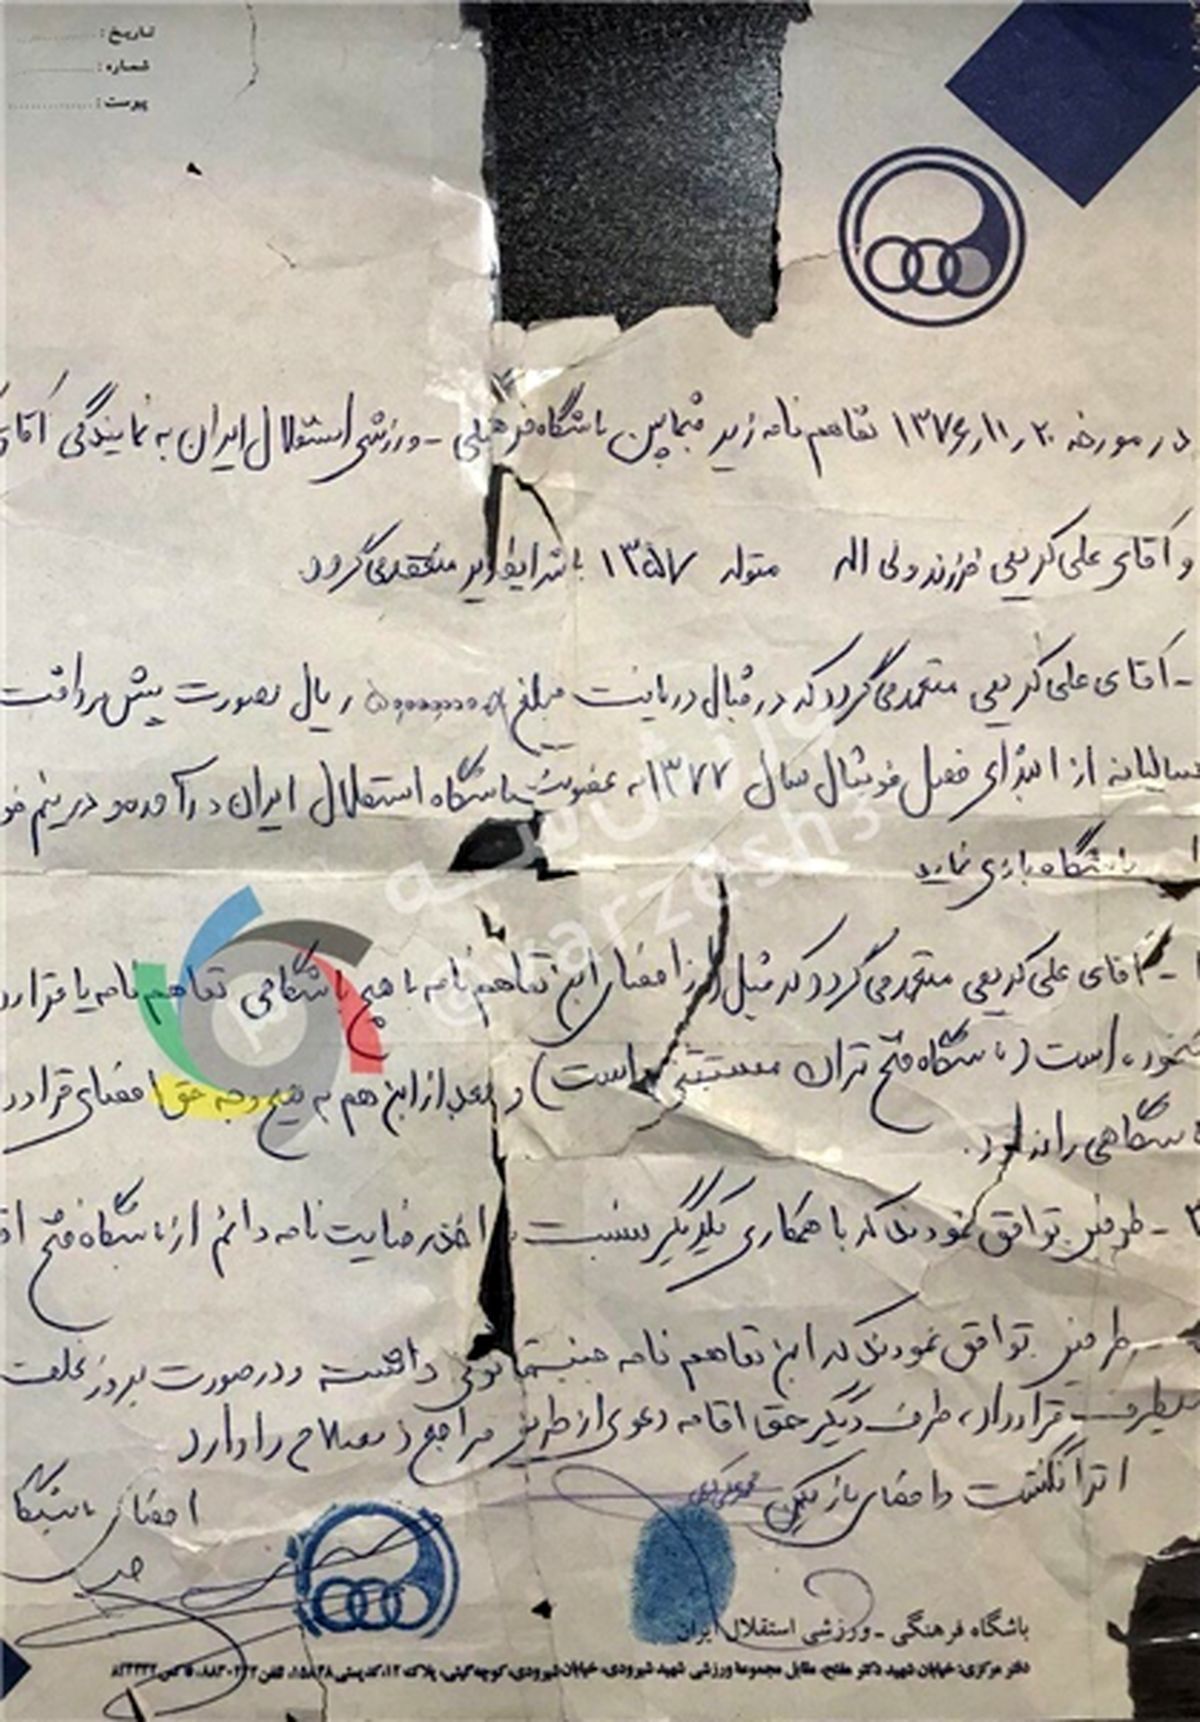 تاریخ :
شماره :
پیوست :
در مورخه ۲۰ ر ۱۱ ر ۱۳۷۶ تفاهم نامه زیر فیمابین باشگاه فرهنگی - ورزشی استقلال ایران به نمایندگی آقای
و آقای علی کریمی فرزند ولی اله متولد ۱۳۵۷ با شرایط زیر منعقد می گردد
- آقای علی کریمی متعهد می گردد که در قبال دریافت مبلغ ریال بصورت پیش پرداخت
سالیانه از ابتدای فصل فوتبال سال ۱۳۷۷ به عضویت باشگاه استقلال ایران در آمده و در تیم
باشگاه بازی نماید
- آقای علی کریمی متعهد می گردد که قبل از امضای این تفاهم نامه با هیچ باشگاهی تفاهم نامه یا قرارداد
است ( باشگاه فتح تهران مستثنی است ) و بعد از این هم به هیچ وجه حق امضای قرارداد
باشگاهی را ندارد .
۳ - طرفین توافق نمودند که با همکاری یکدیگر نسبت به اخذ رضایت نامه دائم از باشگاه فتح
طرفین توافق نمودند که این تفاهم نامه داشته و در صورت بروز تخلف
قرارداد ، طرف دیگر حق اقامه دعوی از طریق مراجع ذیصلاح را دارد
اثر انگشت و امضای بازیکن
امضای باشگاه
باشگاه فرهنگی - ورزشی استقلال ایران
دفتر مرکزی: خیابان شهید دکتر مفتح، مقابل مجموعه ورزشی شهید شیرودی، خیابان شیرودی، کوچه گیتی، پلاک ۱۲، کدپستی ۱۵۸۴۸، تلفن
ورزش سه
@varzesh3